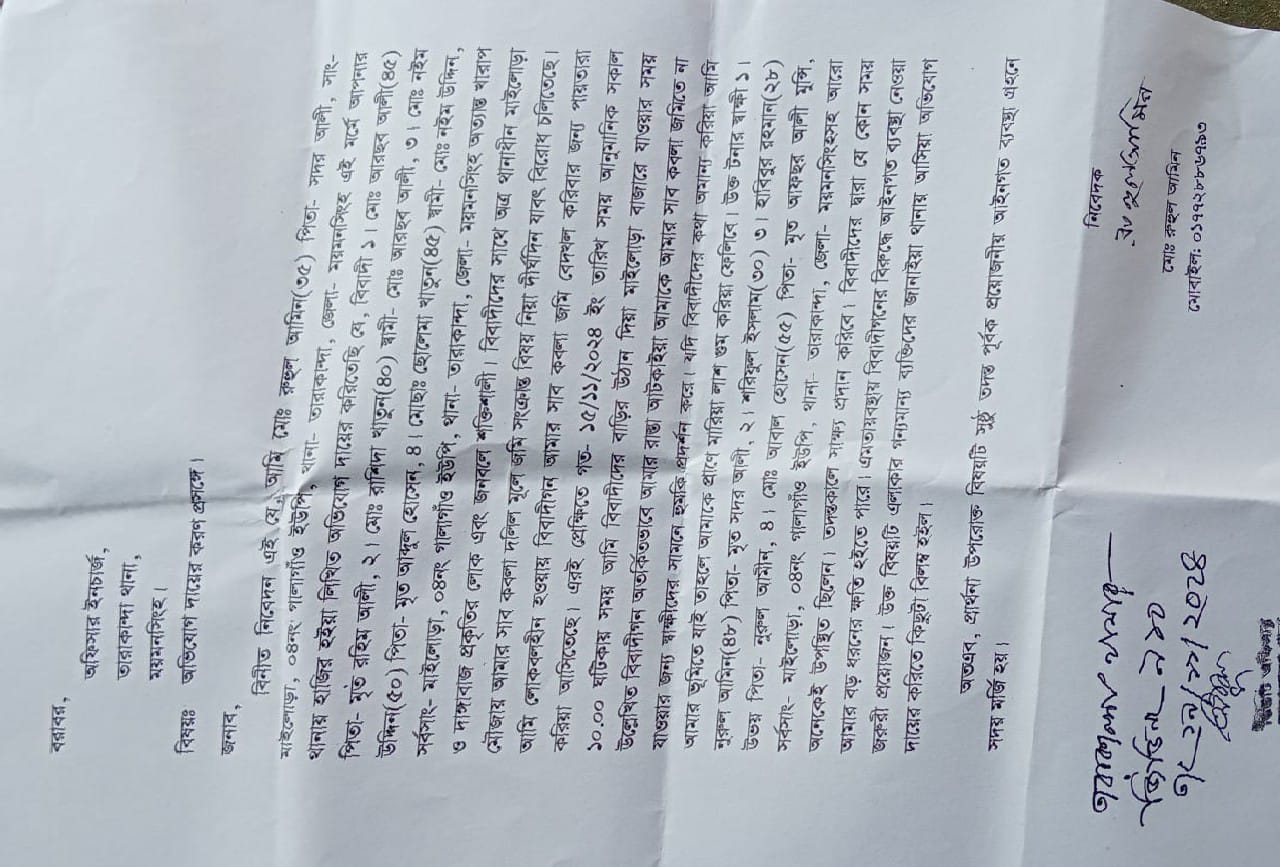 বরাবর,
অফিসার ইনচার্জ,
তারাকান্দা থানা,
ময়মনসিংহ।
বিষয়ঃ অভিযোগ দায়ের করণ প্রসঙ্গে।
জনাব,
বিনীত নিবেদন এই যে, আমি মোঃ রুহুল আমিন(৩৫) পিতা- সদর আলী, সাং-
মাইলোড়া, ০৪নং গালাগাঁও ইউপি, থানা- তারাকান্দা, জেলা- ময়মনসিংহ এই মর্মে আপনার
থানায় হাজির হইয়া লিখিত অভিযোগ দায়ের করিতেছি যে, বিবাদী ১। মোঃ আরছব আলী(৪৫)
পিতা- মৃত রহিম আলী, ২। মোঃ রাশিদা খাতুন(৪০) স্বামী- মোঃ আরছব আলী, ৩। মোঃ নইম
উদ্দিন(৫০) পিতা- মৃত আব্দুল হোসেন, ৪। মোছাঃ ছোলেমা খাতুন(৪৫) স্বামী- মোঃ নইম উদ্দিন,
সর্বসাং- মাইলোড়া, ০৪নং গালাগাঁও ইউপি, থানা- তারাকান্দা, জেলা- ময়মনসিংহ অত্যান্ত খারাপ
ও দাঙ্গাবাজ প্রকৃতির লোক এবং জনবলে শক্তিশালী। বিবাদীদের সাথে অত্র থানাধীন মাইলোড়া
মৌজায় আমার সাব কবলা দলিল মূলে জমি সংক্রান্ত বিষয় নিয়া দীর্ঘদিন যাবৎ বিরোধ চলিতেছে।
আমি লোকবলহীন হওয়ায় বিবাদীগন আমার সাব কবলা জমি বেদখল করিবার জন্য পায়তারা
করিয়া আসিতেছে। এরই প্রেক্ষিতে গত- ১৫/১১/২০২৪ ইং তারিখ সময় আনুমানিক সকাল
১০.০০ ঘটিকার সময় আমি বিবাদীদের বাড়ির উঠান দিয়া মাইলোড়া বাজারে যাওয়ার সময়
উল্লেখিত বিবাদীগন অতর্কিতভাবে আমার রাস্তা আটকাইয়া আমাকে আমার সাব কবলা জমিতে না
যাওয়ার জন্য স্বাক্ষীদের সামনে হুমকি প্রদর্শন করে। যদি বিবাদীদের কথা অমান্য করিয়া আমি
আমার ভূমিতে যাই তাহলে আমাকে প্রাণে মারিয়া লাশ গুম করিয়া ফেলিবে। উক্ত টনার স্বাক্ষী ১।
নুরুল আমিন(৪৮) পিতা- মৃত সদর আলী, ২। শরিফুল ইসলাম(৩০) ৩। হাবিবুর রহমান(২৮)
উভয় পিতা- নুরুল আমীন, ৪। মোঃ আবাল হোসেন(৫৫) পিতা- মৃত আফছর আলী মুন্সি,
সর্বসাং- মাইলোড়া, ০৪নং গালাগাঁও ইউপি, থানা- তারাকান্দা, জেলা- ময়মনসিংহসহ আরো
অনেকেই উপস্থিত ছিলেন। তদন্তকালে সাক্ষ্য প্রদান করিবে। বিবাদীদের দ্বারা যে কোন সময়
আমার বড় ধরনের ক্ষতি হইতে পারে। এমতাবস্থায় বিবাদীগনের বিরুদ্ধে আইনগত ব্যবস্থা নেওয়া
জরুরী প্রয়োজন। উক্ত বিষয়টি এলাকার গন্যমান্য ব্যক্তিদের জানাইয়া থানায় আসিয়া অভিযোগ
দায়ের করিতে কিছুটা বিলম্ব হইল।
অতএব, প্রার্থনা উপরোক্ত বিষয়টি সুষ্ঠু তদন্ত পূর্বক প্রয়োজনীয় আইনগত ব্যবস্থা গ্রহনে
সদয় মর্জি হয়।
নিবেদক
মোঃ রুহুল আমিন
মোঃ রুহুল আমিন